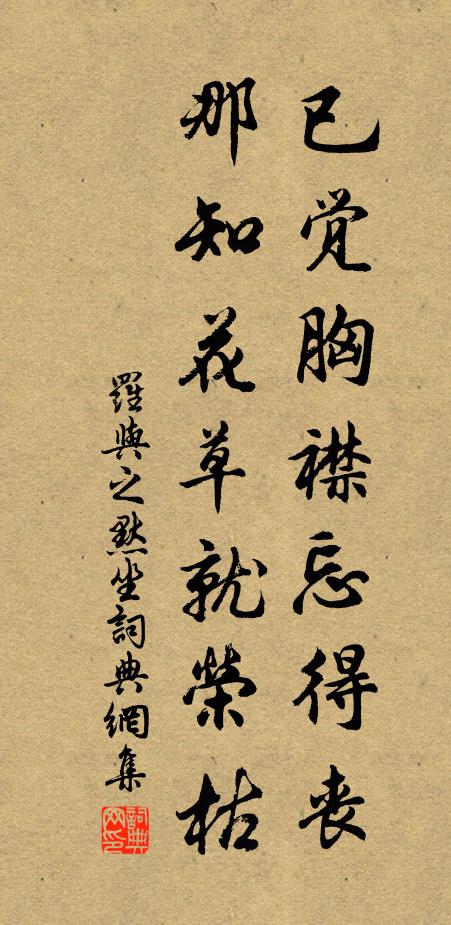 已觉胸襟忘得丧
那知花草就榮枯
羅與之默坐詞典網集
詞典网印